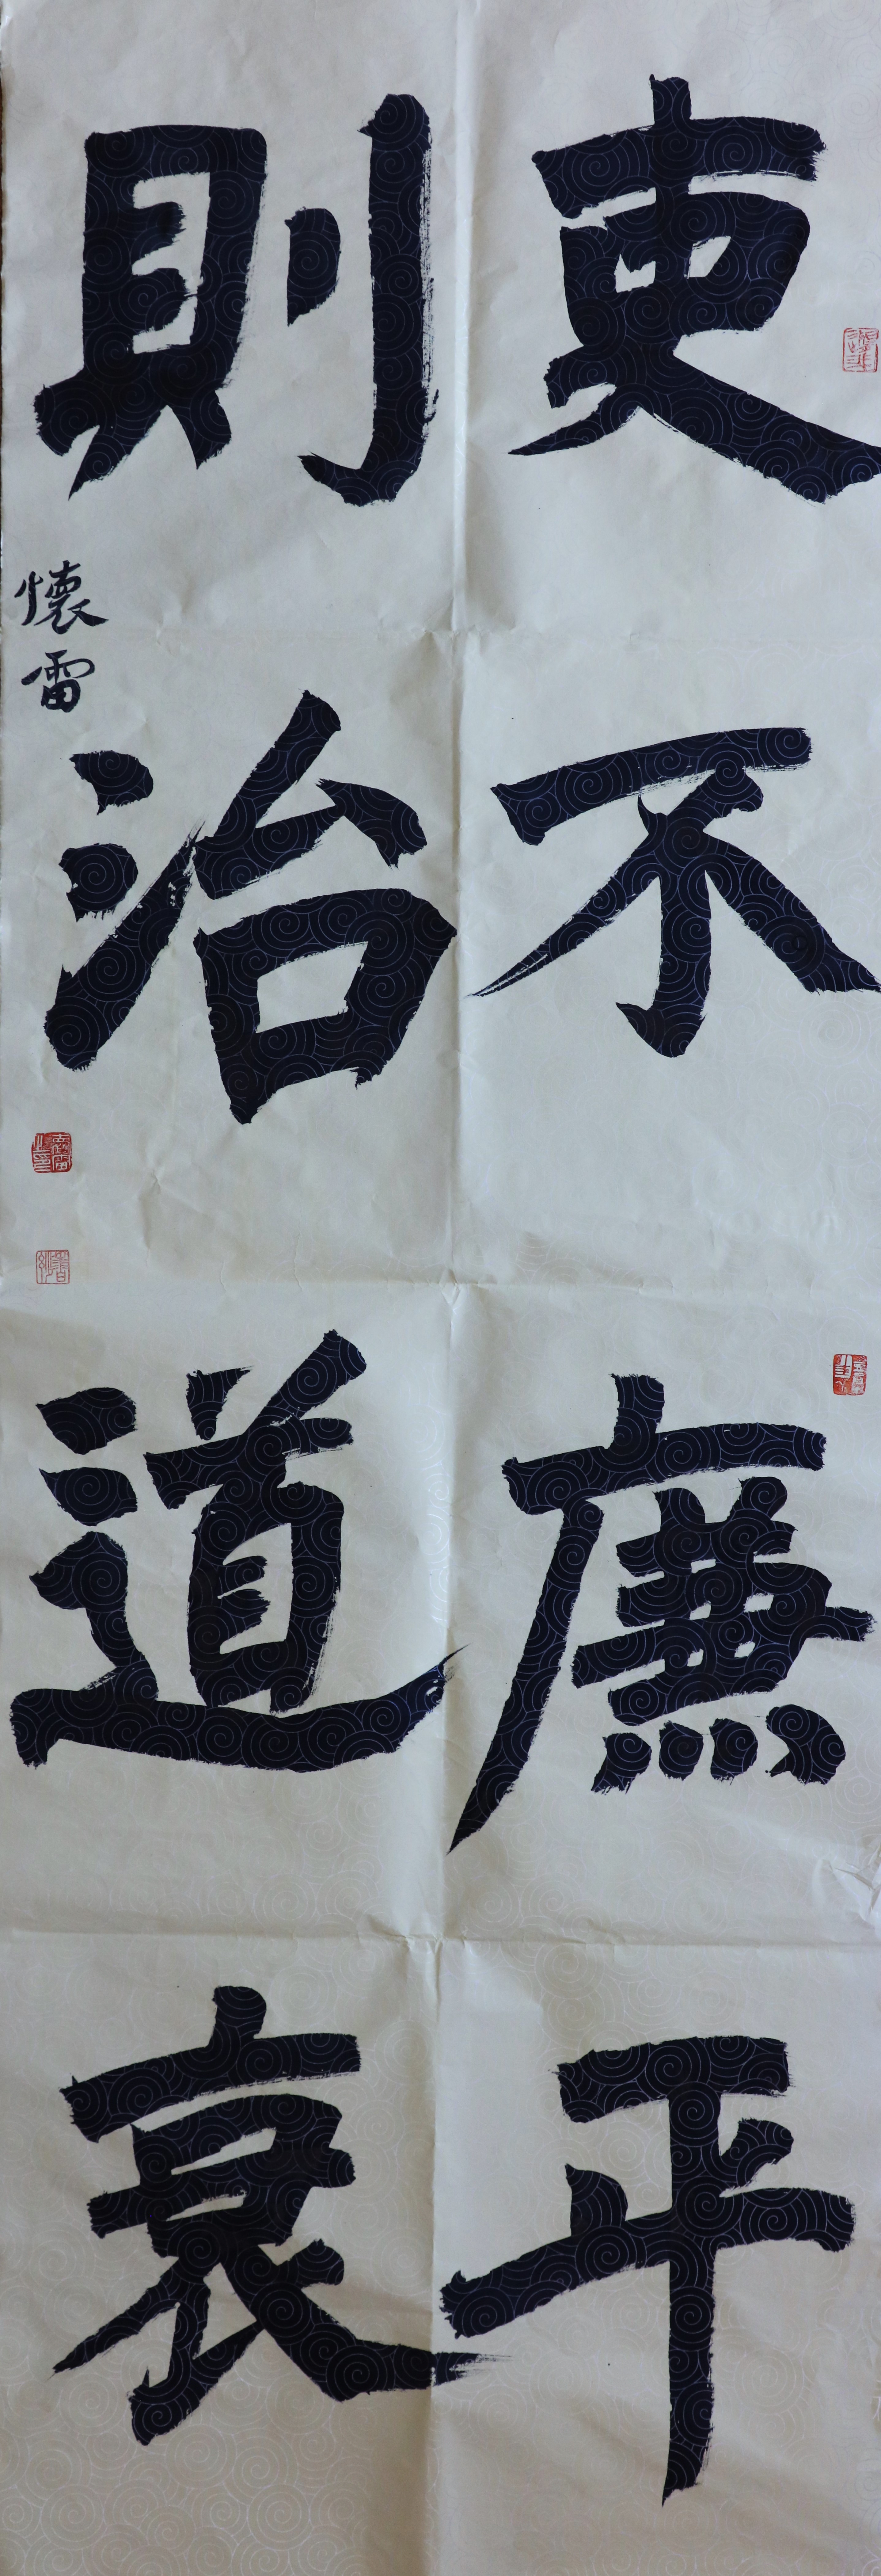 吏不廉平
則治道衰
懷雷